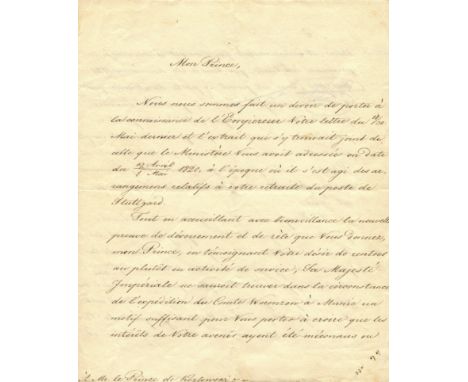 Mon Prince,
Nous nous sommes fait un devoir de porter à
la connaissance de l'Empereur Votre lettre du 8/20
Mai dernier et l'extrait qui s'y trouvait joint de
celle que le Ministère Vous avoit adressée en date
du 19 Avril/1 Mai 1820, à l'époque où il s'est agi des ar-
rangemens relatifs à votre retraite du poste de
Stuttgard.
Tout en accueillant avec bienveillance la nouvelle
preuve de dévouement et de zèle que Vous donnez,
mon Prince, en témoignant Votre désir de rentrer
au plutôt en activité de service, Sa Majesté
Impériale ne sauroit trouver dans la circonstance
de l'expédition du Comte Woronzow à Munic un
motif suffisant pour Vous porter à croire que les
intérêts de Votre avenir ayent été méconnus ou
à Mr. le Prince de